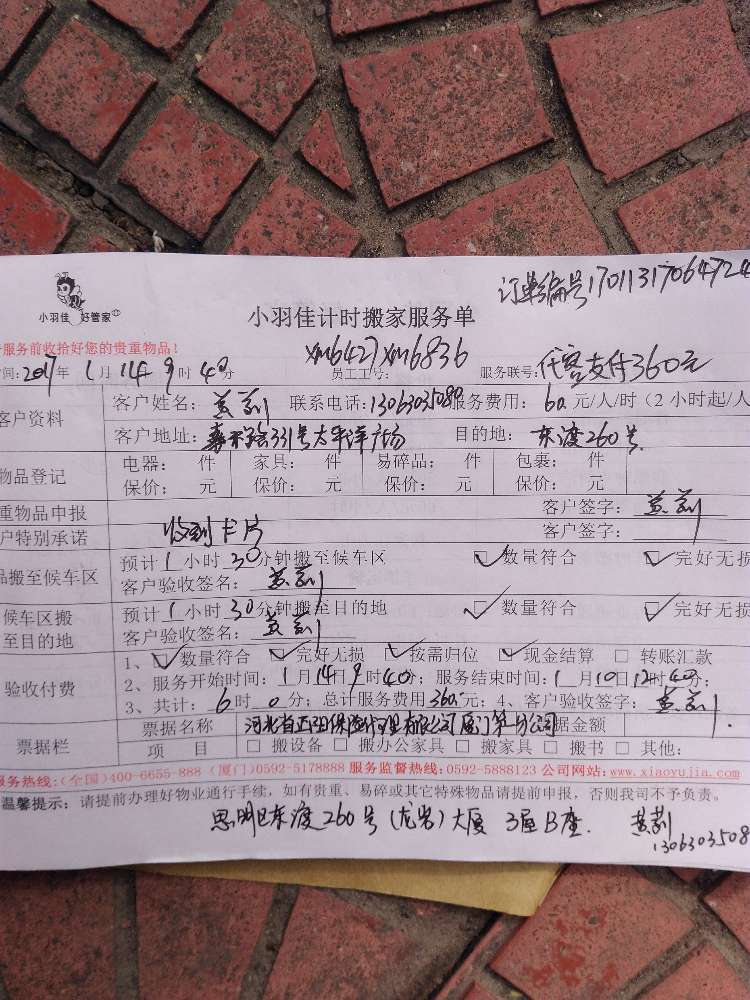 订单编号17011317064724
小羽佳 好管家
小羽佳计时搬家服务单
服务前收拾好您的贵重物品!
XM6427 XM6836
时间:2017年1月14日9时40分 员工工号: 服务联号:代客支付360元
客户资料
客户姓名: 联系电话:13063035080 服务费用:60元/人/时(2小时起/人
客户地址:嘉禾路331号太平洋广场 目的地:东渡260号
物品登记
电器: 件 家具: 件 易碎品: 件 包裹: 件
保价: 元 保价: 元 保价: 元 保价: 元
重物品申报 客户签字:
户特别承诺 收到卡片 客户签字:
品搬至候车区
预计1小时30分钟搬至候车区 ☑数量符合 ☑完好无损
客户验收签名:
候车区搬至目的地
预计1小时30分钟搬至目的地 ☑数量符合 ☑完好无损
客户验收签名:
验收付费
1、☑数量符合 ☑完好无损 ☑按需归位 ☑现金结算 □转账汇款
2、服务开始时间:1月14日9时40分;服务结束时间:1月10日12时40分;
3、共计:6时0分;总计服务费用360元;4、客户验收签字:
票据栏
票据名称 河北省 保险代理有限公司厦门第一分公司 据金额
项 目 □搬设备 □搬办公家具 □搬家具 □搬书 □其他:
服务热线:(全国)400-6655-888 (厦门)0592-5178888 服务监督热线:0592-5888123 公司网站:www.xiaoyujia.com
温馨提示:请提前办理好物业通行手续,如有贵重、易碎或其它特殊物品请提前申报,否则我司不予负责。
思明区东渡260号(龙岩)大厦 3层B座.
1306303508